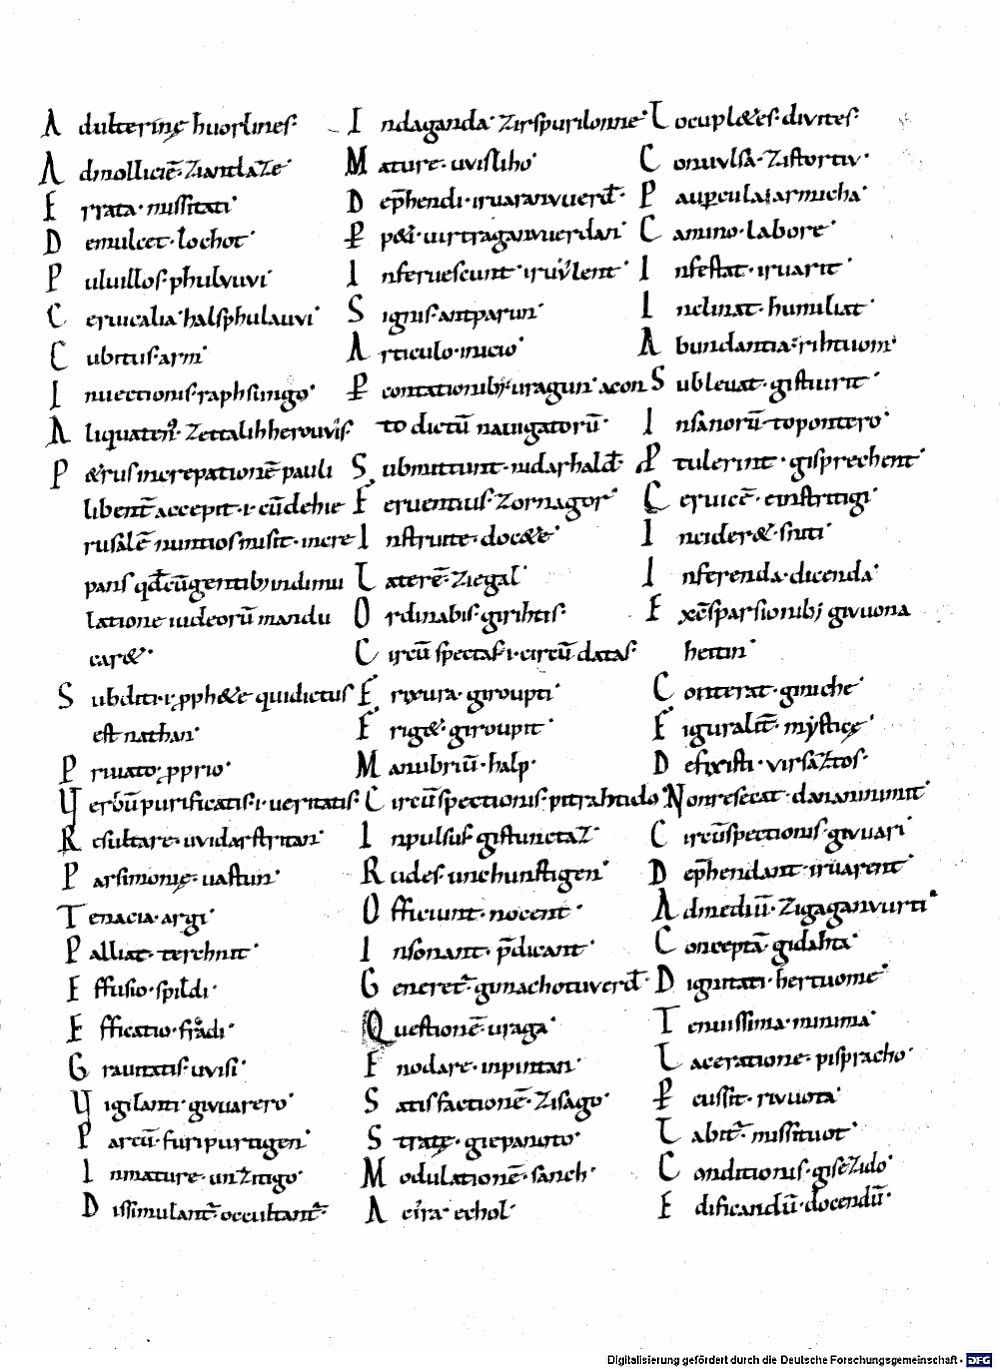 Adulterinę huorlines·
Admolliciē· ziantlaze·
Errata· missitati·
Demulcet· lochot·
Puluillos· phulvuvi
Ceruicalia· halsphulauvi·
Cubitus· arm·
Inuectionis· raphsungo·
Aliquaten᷒· zettalihherouvis·
P&rus increpationē pauli
libent̄ accepit· i· cū dehie
rusalē nuntios misit· incre
pans qđ cū gentib; indimu
latione iudeorū mandu
car&·
Subditi· i· ꝓph&e qui dictus
est nathan·
Priuato· ꝓprio·
Verbūm purificatis· i· ueritatis·
Resultare· uvidarstritan·
Parsimonię· uastun·
Tenacia· argi·
Palliat· terchnit·
Effusio· spildi·
Efficatio· fradi·
Grauitatis· uvisi·
Vigilanti· givuarero·
Parcū· furipurtigen·
Inmature· unzitigo·
Dissimulant̄· occultant̄·
Indaganda· zirspurilonne·
Mature· uvisliho·
Dep̄hendi· iruaranvuerđ·
Ꝑp&i· uirtraganvuerdan·
Inferuescunt· iruvͥlent·
Signis· antparun·
Articulo· inicio·
Ꝑcontationib;· uragun· acon
to dictū nauigatorū·
Submittunt· nidarhalđ·
Feruentius· zornagor·
Instruite· doc&e·
Laterē· ziegal·
Ordinabis· girihtis·
Circū spectas· i· circū datas·
Erixura· giroupti·
Frig&· giroupit·
Manubriū· halp·
Circūspectionis· pitrahtido·
Inpulsus· gistunctaz·
Rudes· unchunstigen·
Officiunt· nocent·
Insonant· p̄dicant·
Generet̄· gimachotuverđ·
Questionē· uraga·
Enodare· inpintan·
Satisfactionē· zisago·
Stratę· giepanoto·
Modulationē· sanch·
Acira· echol·
Locupl&es· divites·
Conuulsa· zistortiv·
Paupercula· iarmicha·
Camino· labore·
Infestat· iruarit·
Inclinat· humiliat·
Abundantia· rihtuom·
Subleuat· gistiurit·
Insanorū· topontero·
Ptulerint· gisprechent·
Ceruicē· einstritigi·
Incider&· sniti·
Inferenda· dicenda·
Excēsparsionib; givuona
heitin·
Conterat· gimche·
Figuralit̄· mysticę·
Defixisti· virsaztos·
Non resecat· danannimit·
Circūspectionis· givuari·
Dep̄hendant· iruarent·
Admediū· zigaganvurti·
Conceptā· gidahta·
Dignitati· hertuome·
Tenuissima· minima·
Laceratione· pispracho·
Ꝑcussit· rivuota·
Labit̄· missituot·
Conditionis· gisezido·
Edificandū· docendū·
Digitalisierung gefördert durch die Deutsche Forschungsgemeinschaft - DFG